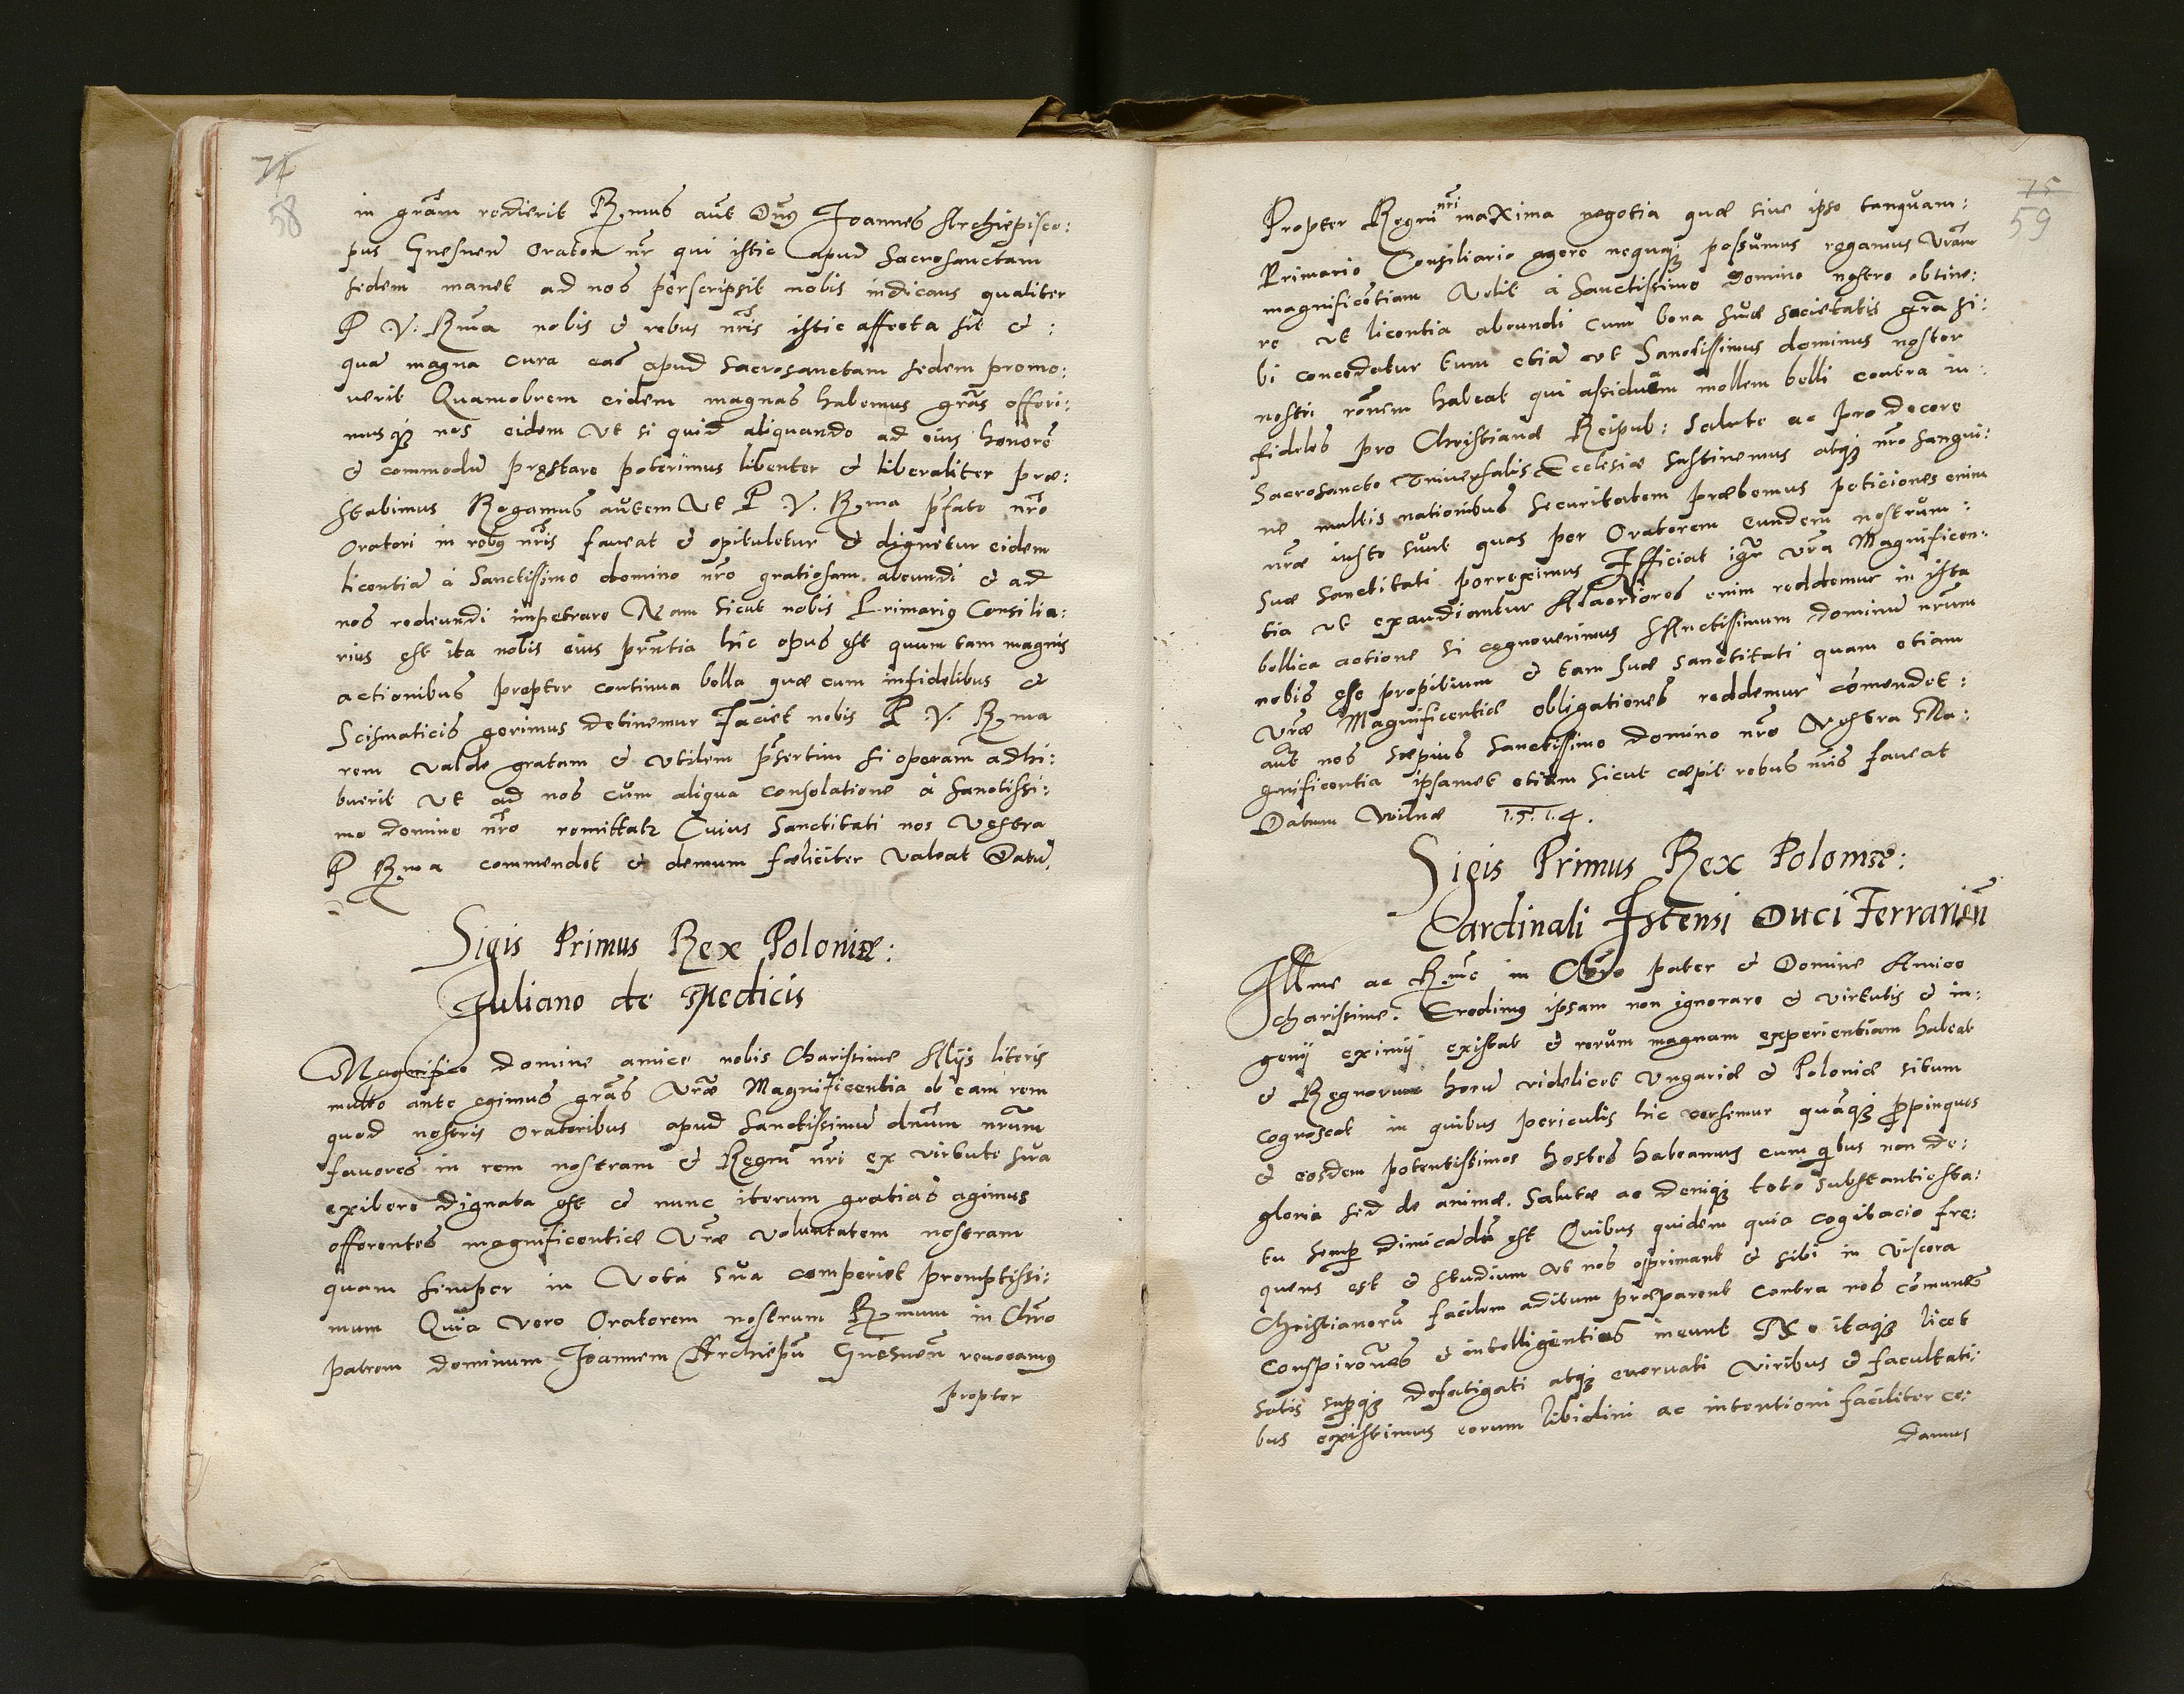 74
58
in grãm redierit Rmus aut Dñs Joannes Archiepisco:
pus Gnesneñ Orator nr̃ qui istic apud Sacrosanctam
sedem manet ad nos perscripsit nobis indicans qualiter
P. V. Rm̃a nobis & rebus nr̃is istic affecta sit & :
qua magna cura eas apud Sacrosanctam sedem promo:
uerit Quamobrem eidem magnas habemus grãs offeri:
musq3 nos eidem Vt si quid aliquando ad eius honorẽ
& commodũ pręstare poterimus libenter & liberaliter præ:
stabimus Rogamus autem Vt P. V. Rma p̃fato nr̃o
Oratori in reb9 nr̃is faueat & opituletur & dignetur eidem
licentiã à Sanctissimo domino nr̃o gratiosam abeundi & ad
nos redeundi impetrare Nam sicut nobis Primari9 Consilia:
rius est ita nobis eius prñtia hic opus est quum tam magnis
actionibus propter continua bella quæ cum infidelibus &
Scismaticis gerimus detinemur Faciet nobis P. V. Rma
rem valde gratam & vtilem p̃sertim si operam adhi:
buerit vt ad nos cum aliqua consolatione à Sanctissi:
mo domino nr̃o remittatr Cuius Sanctitati nos Vestra
P Rma commendet & demum fæliciter valeat Datũ
Sigis Primus Rex Poloniæ:
Juliano de Medicis
Magnifice domine amice nobis Charissime Alijs literis
multo ante egimus grãs Vr̃æ Magnificentiæ ob eam rem
quod nostris Oratoribus apud Sanctissimũ dñum nr̃um
fauores in rem nostram & Regni nr̃i ex virtute sua
exibere dignata est & nunc iterum gratias agimus
offerentes magnificentiæ Vr̃æ voluntatem nostram
quam semper in Vota sua comperiet promptissi:
mum Quia vero Oratorem nostrum Rmum in Chr̃o
patrem dominum Joannem Archiepũ Gnesneñ reuocam9
propter
75
59
Propter Regni nr̃i maxima negotia quæ sine ipso tanquam:
Primario Consiliario agere nequaq3 possumus rogamus Vr̃am
magnificẽtiam Velit à Sanctissimo Domino nostro obtine:
re vt licentia abeundi cum bona suæ sacietatis grã si:
bi concedatur tum etiã vt Sanctissimus dominus noster
nostri rõnem habeat qui assiduam mollem belli contra in:
fideles pro Christianæ Reipub: salute ac pro decore
Sacrosancte Vniuersalis Ecclesiæ sustinemus atq3 nr̃o sangui:
ne multis nationibus securitatem præbemus peticiones enim
nr̃æ iuste sunt quas per Oratorem eundem nostrum :
suæ Sanctitati porreximus Efficiat igr̃ vr̃a Magnificen:
tia vt exaudiantur Alacriores enim reddemur in ista
bellica actione si cognouerimus Sanctissimum dominũ nr̃um
nobis esse propitium & tam suæ Sanctitati quam etiam
Vr̃æ Magnificentiæ obligatiores reddemur cõmendet :
aũt nos sæpius Sanctissimo domino nr̃o Vestra Ma:
gnificentia ipsamet etiam sicut cæpit rebus nr̃is faueat
Datum Wilnæ 1.5.1.4.
Sigis Primus Rex Poloniæ:
Cardinali Estensi Duci Ferrarieñ
Illme ac Rm̃e in Chr̃o pater & Domine Amice
charissime. Credim9 ipsam non ignorare & virtutis & in:
genij eximij existat & rerum magnam experientiam habeat
& Regnorum horũ videlicet Vngariæ & Poloniæ situm
cognoscat in quibus periculis hic versemur quãq3 ꝓpinquos
& eosdem potentissimos hostes habeamus cum qbus non de:
gloria sed de animæ salute ac deniq3 toto substantie sta:
tu semp dimicãdũ est Quibus quidem quia cogitacio fre:
quens est & studium vt nos opprimant & sibi in viscera
Christianorũ facilem aditum præparent contra nos cõmunes
conspirõnes & intelligentias ineunt Nos itaq3 licet
satis supq3 defatigati atq3 eneruati viribus & facultati:
bus existimus eorum libidini ac intentioni faciliter ce:
damus